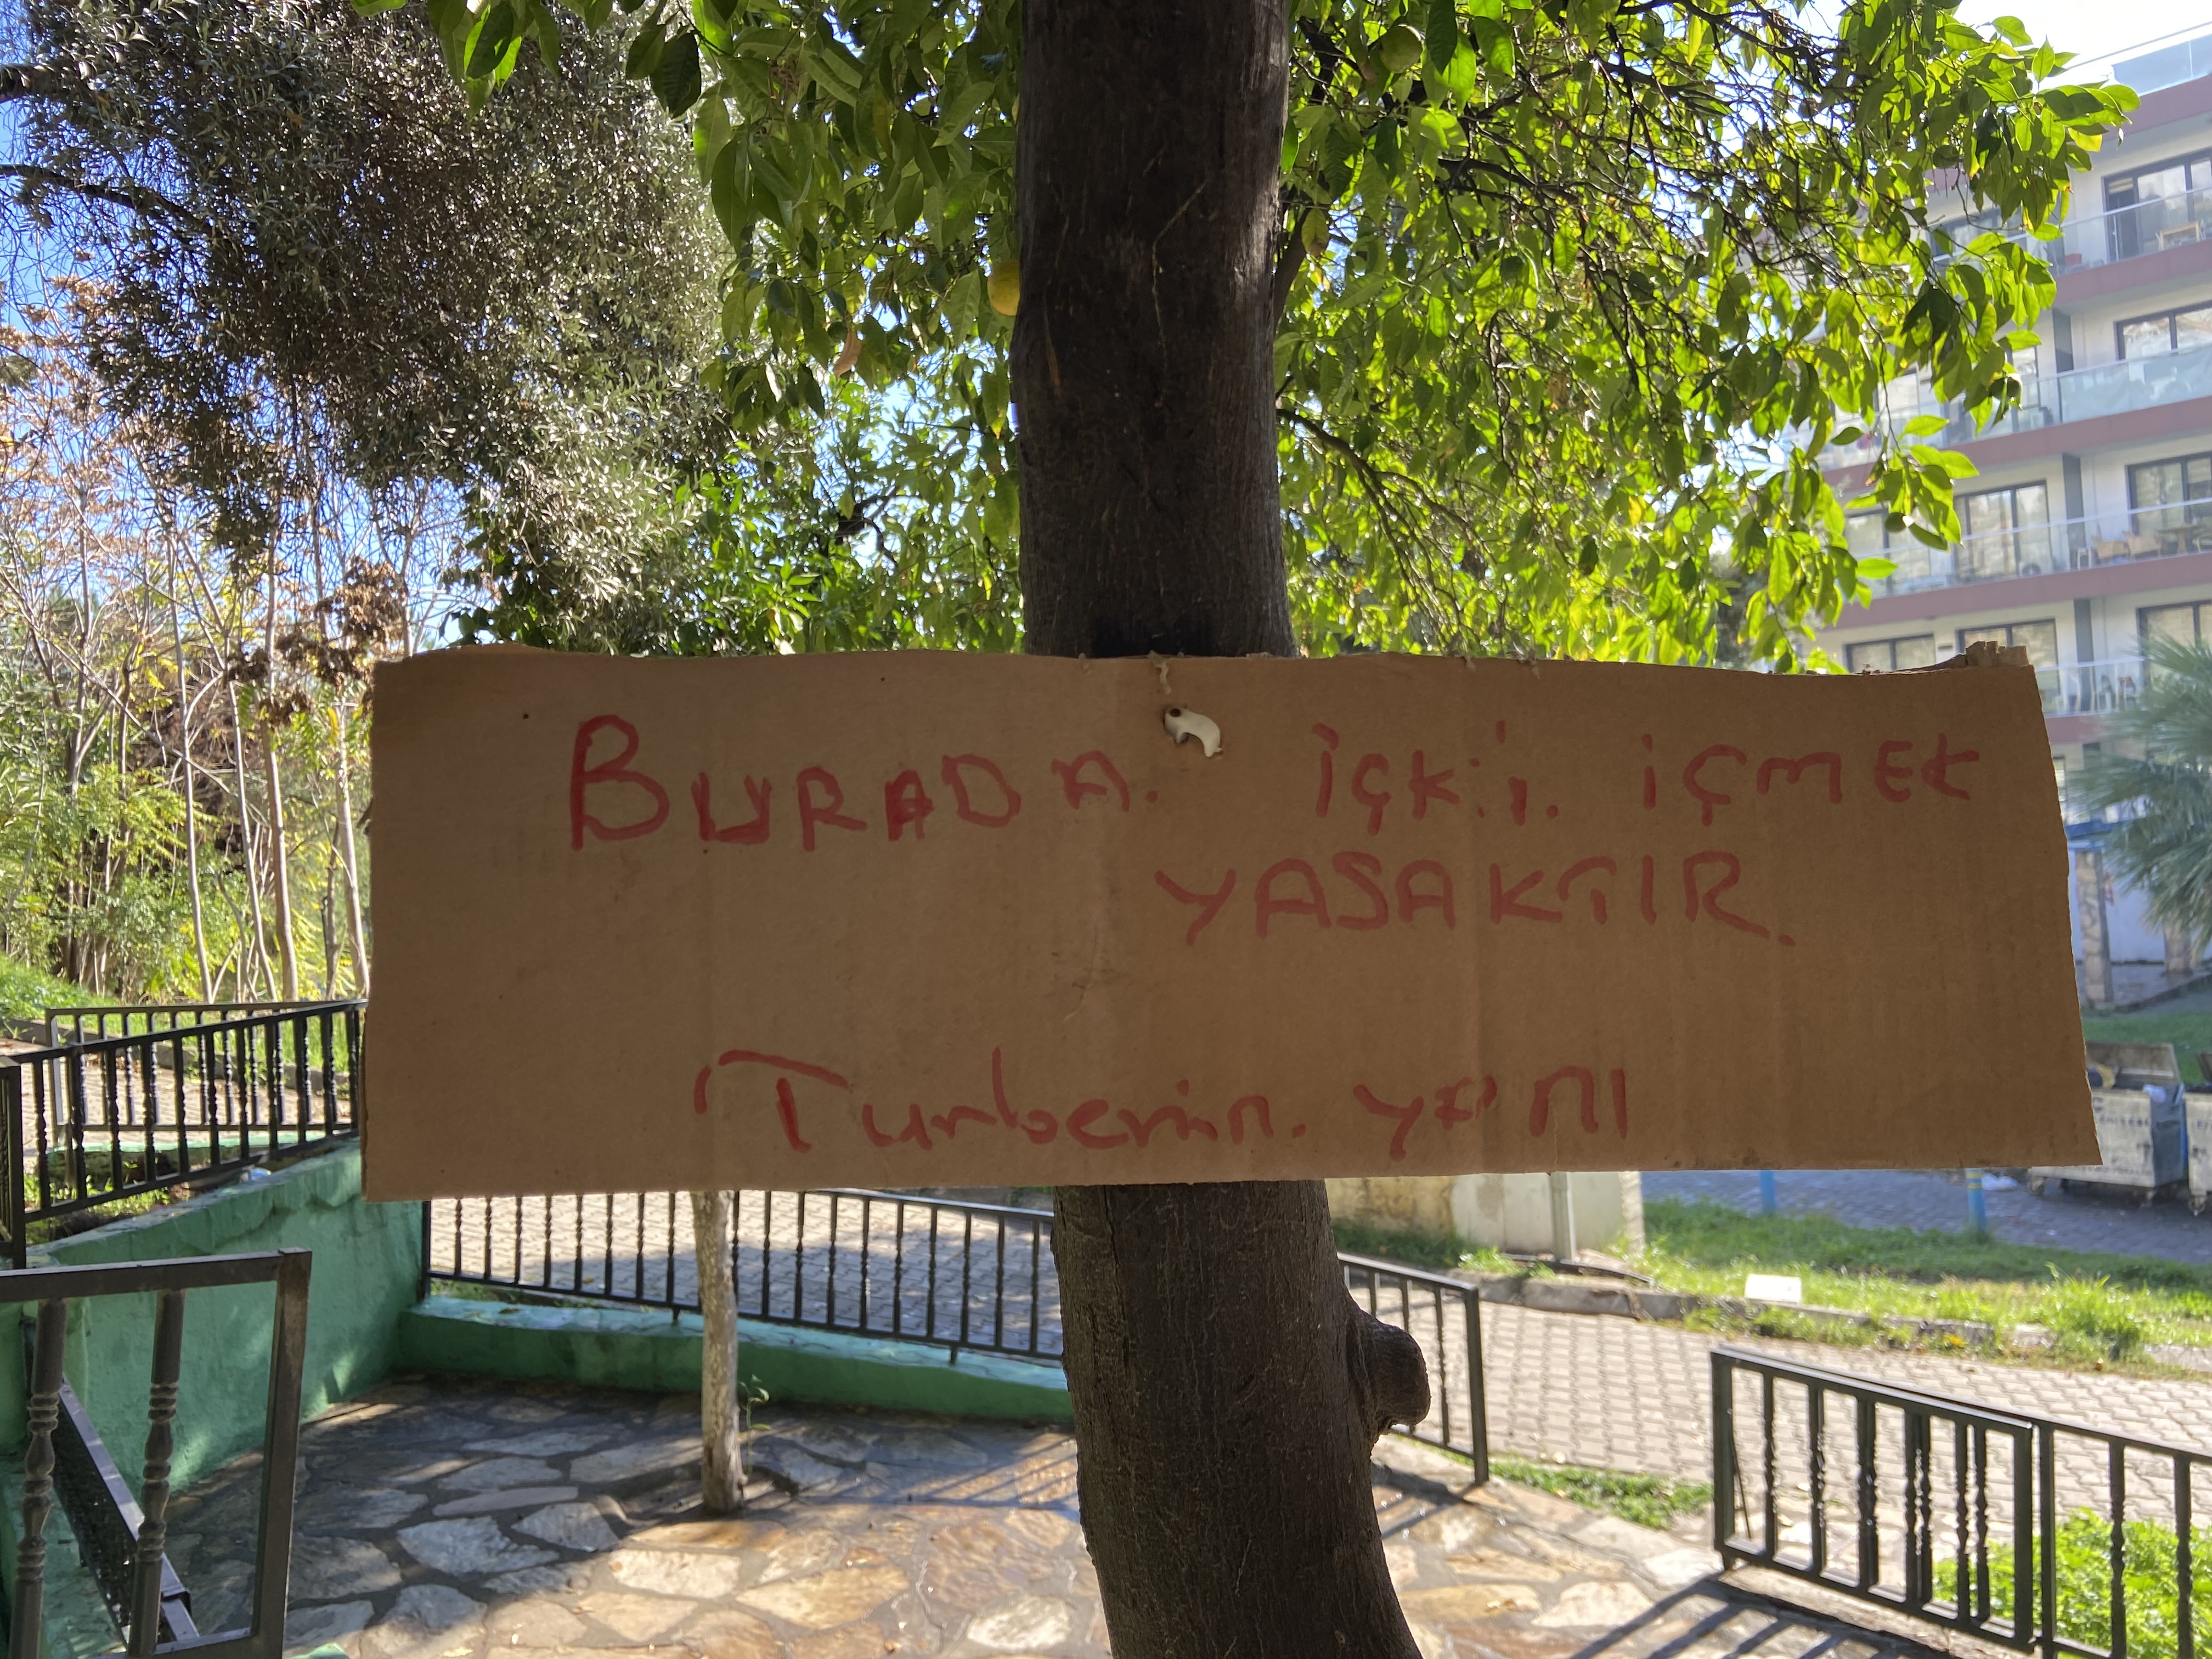 BURADA. içki. içmEK
YASAKTIR.
Turbenin. YANI